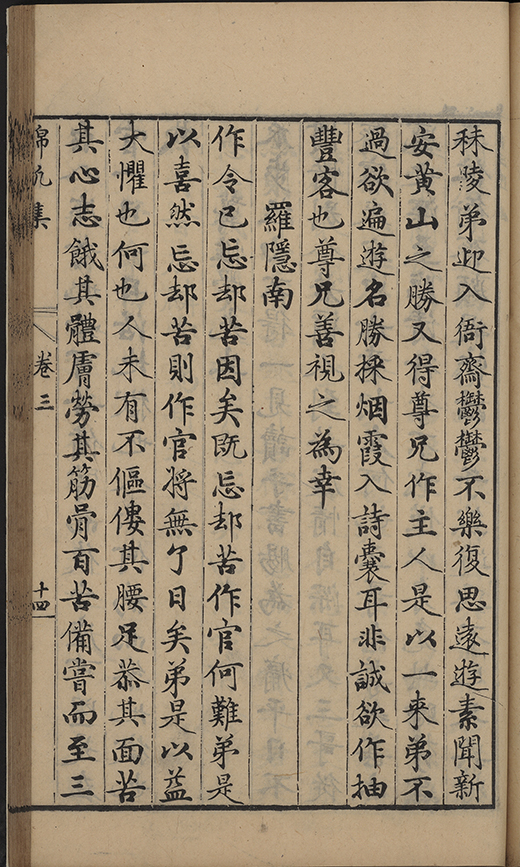 秣陵弟迎入衙齋鬱鬱不樂復思遠遊素聞新
安黃山之勝又得尊兄作主人是以一來弟不
過欲遍遊名勝採烟霞入詩囊耳非誠欲作抽
豐客也尊兄善視之為幸
羅隱南
作令已忘却苦因矣既忘却苦作官何難弟是
以喜然忘却苦則作官將無了日矣弟是以益
大懼也何也人未有不傴僂其腰足恭其面苦
其心志餓其體膚勞其筋骨百苦備嘗而至三
錦帆集
卷三
十四